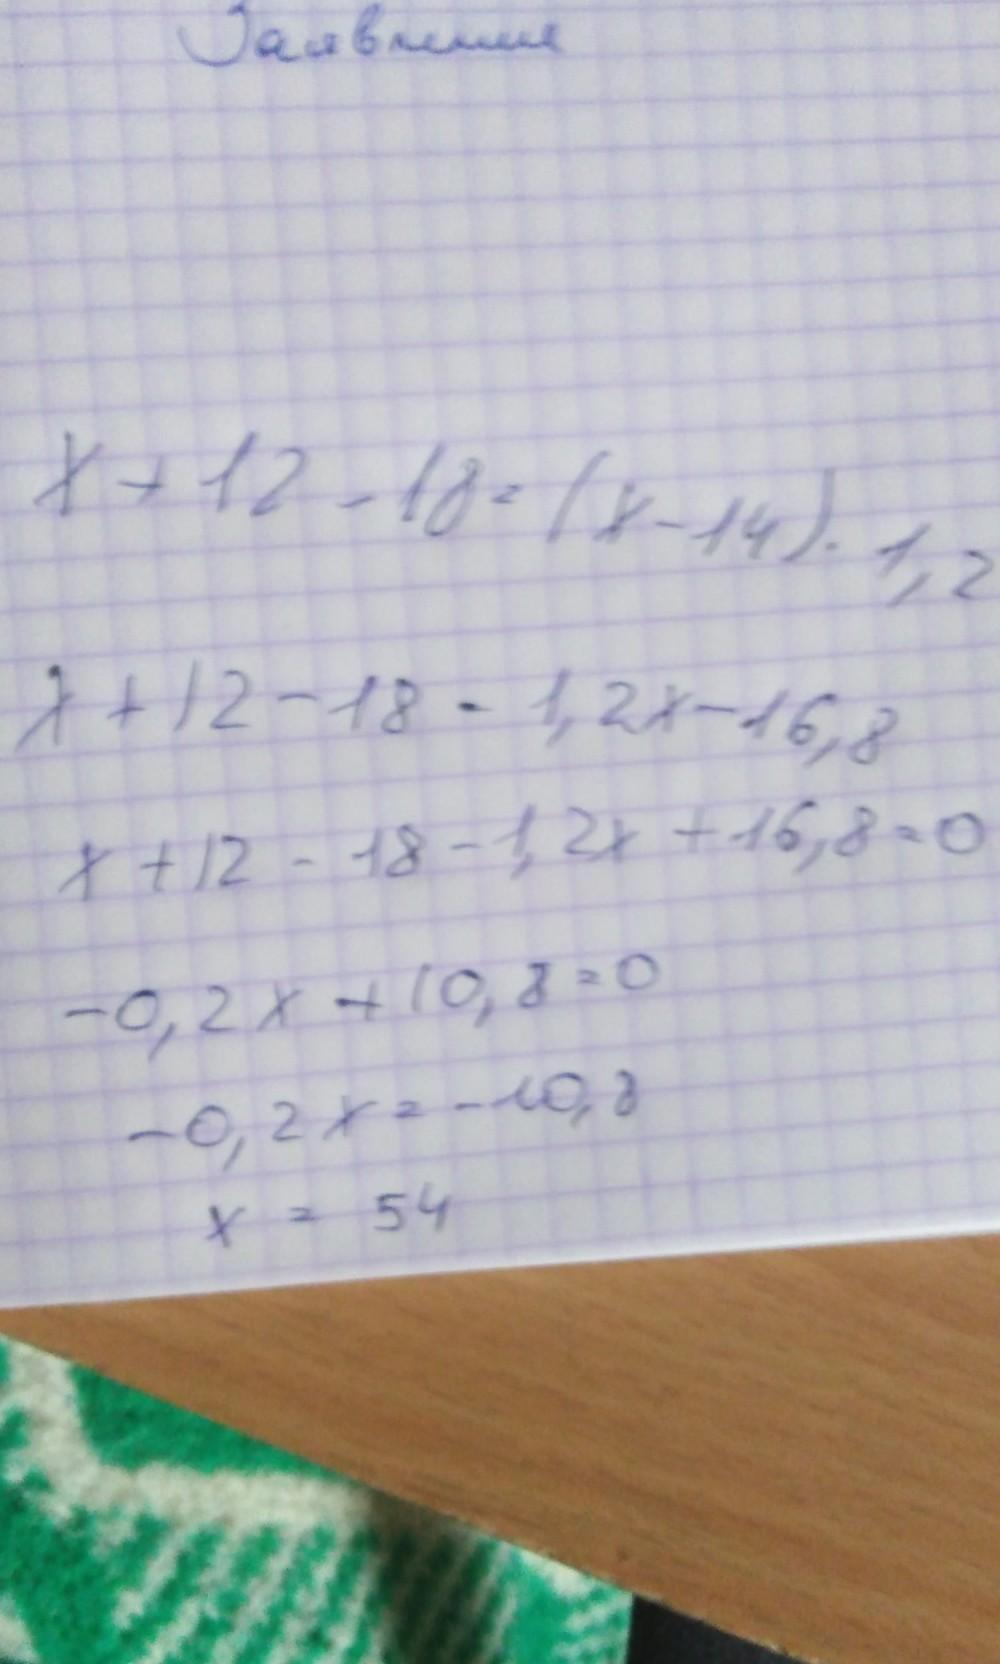 Заявление
x + 12 - 18 = (x - 14) · 1,2
x + 12 - 18 = 1,2x - 16,8
x + 12 - 18 - 1,2x + 16,8 = 0
-0,2x + 10,8 = 0
-0,2x = -10,8
x = 54